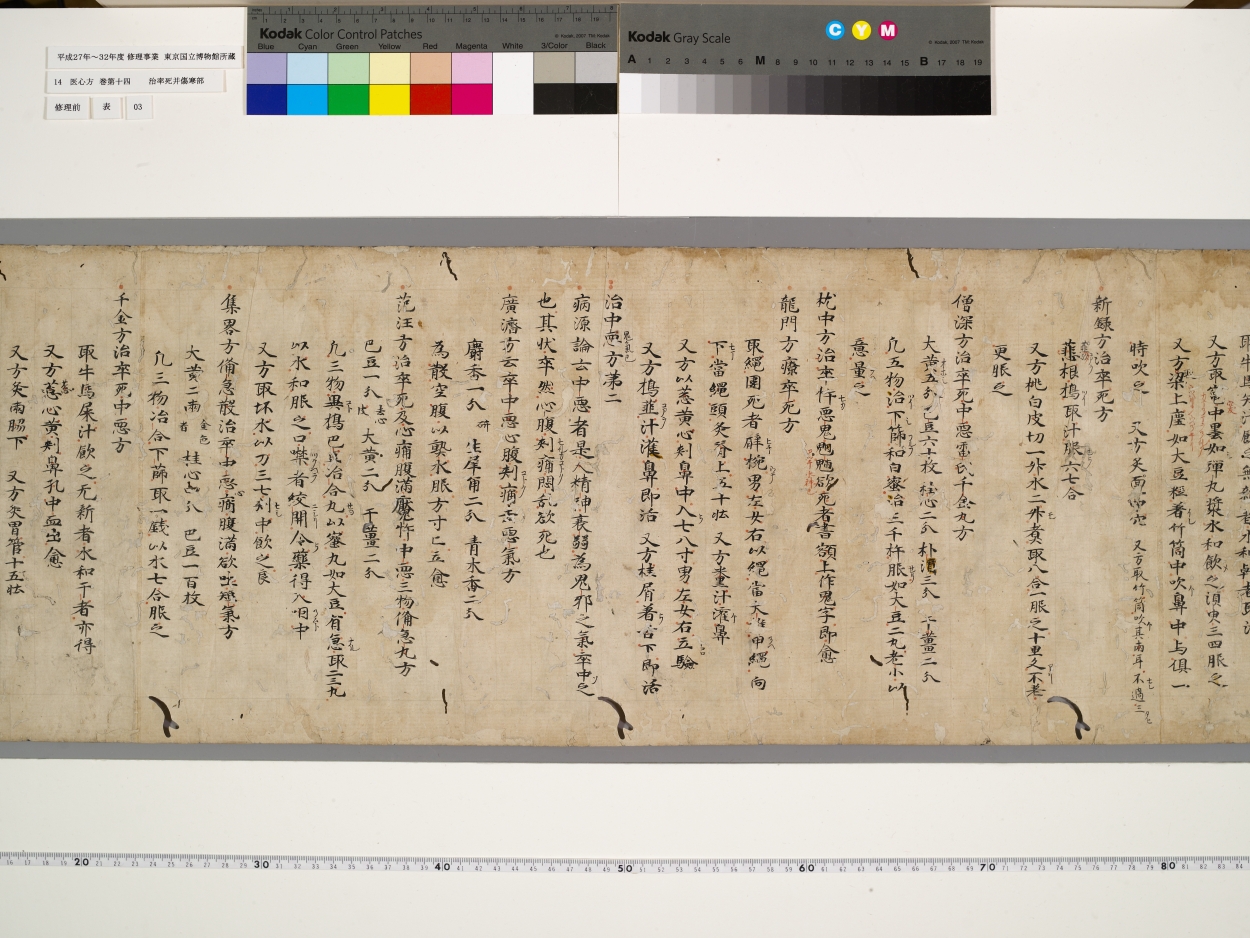 平成27年～32年度 修理事業 東京国立博物館所蔵
14 医心方 巻第十四 治卒死并傷寒部
修理前 表 03
Kodak Color Control Patches
Blue Cyan Green Yellow Red Magenta White 3/Color Black
Kodak Gray Scale
C Y M
A 1 2 3 4 5 6 M 8 9 10 11 12 13 14 15 B 17 18 19
又方取 中墨如弾丸漿水和飲之須臾三四服之
又方梁上塵如大豆 著竹筒中吹鼻中与俱一
時吹之 又方灸面 又方取竹筒吹其両耳不過三
新録方治卒死方
薤根搗取汁服六七合
又方桃白皮切一升水二升煮取八合一服之十里久不差
更服之
僧深方治卒死中悪雷氏千金丸方
大黄五分 巴豆六十枚 桂心二分 朴消三分 干薑二分
凡五物治下篩和白蜜治三千杵服如大豆二丸老小以
意量之
枕中方治卒忤悪鬼 欲死者書額上作鬼字即愈
龍門方療卒死方
取縄囲死者 腕男左女右以縄当大椎 縄向
下当縄頭灸脊上五十壮 又方 汁潅鼻
又方以葱黄心刾鼻中入七八寸男左女右立験
又方搗韮汁潅鼻即治 又方桂屑着舌下即活
治中悪方第二
病源論云中悪者是人精神衰弱為鬼邪之氣卒中之
也其状卒然心腹刾痛悶乱欲死也
廣濟方云卒中悪心腹刾痛去悪氣方
麝香一分研 生犀角二分 青木香二分
為散空腹以熟水服方寸匕立愈
范汪方治卒死及心痛腹満魔忤中悪三物備急丸方
巴豆一分去皮 大黄二分 干薑二分
凡三物異搗巴豆治合丸以蜜丸如大豆有急取二三丸
以水和服之口噤者絞開令藥得入咽中
又方取坏水以刀三七刾中飲之良
集畧方備急散治卒中悪心痛腹満欲 氣方
大黄二両金色者 桂心 分 巴豆一百枚
凡三物治合下篩取一銭以水七合服之
千金方治卒死中悪方
取牛馬屎汁飲之无新者水和干者亦得
又方葱心黄刾鼻孔中血出愈
又方灸両腸下 又方灸胃管十五壮
20 30 40 50 60 70 80